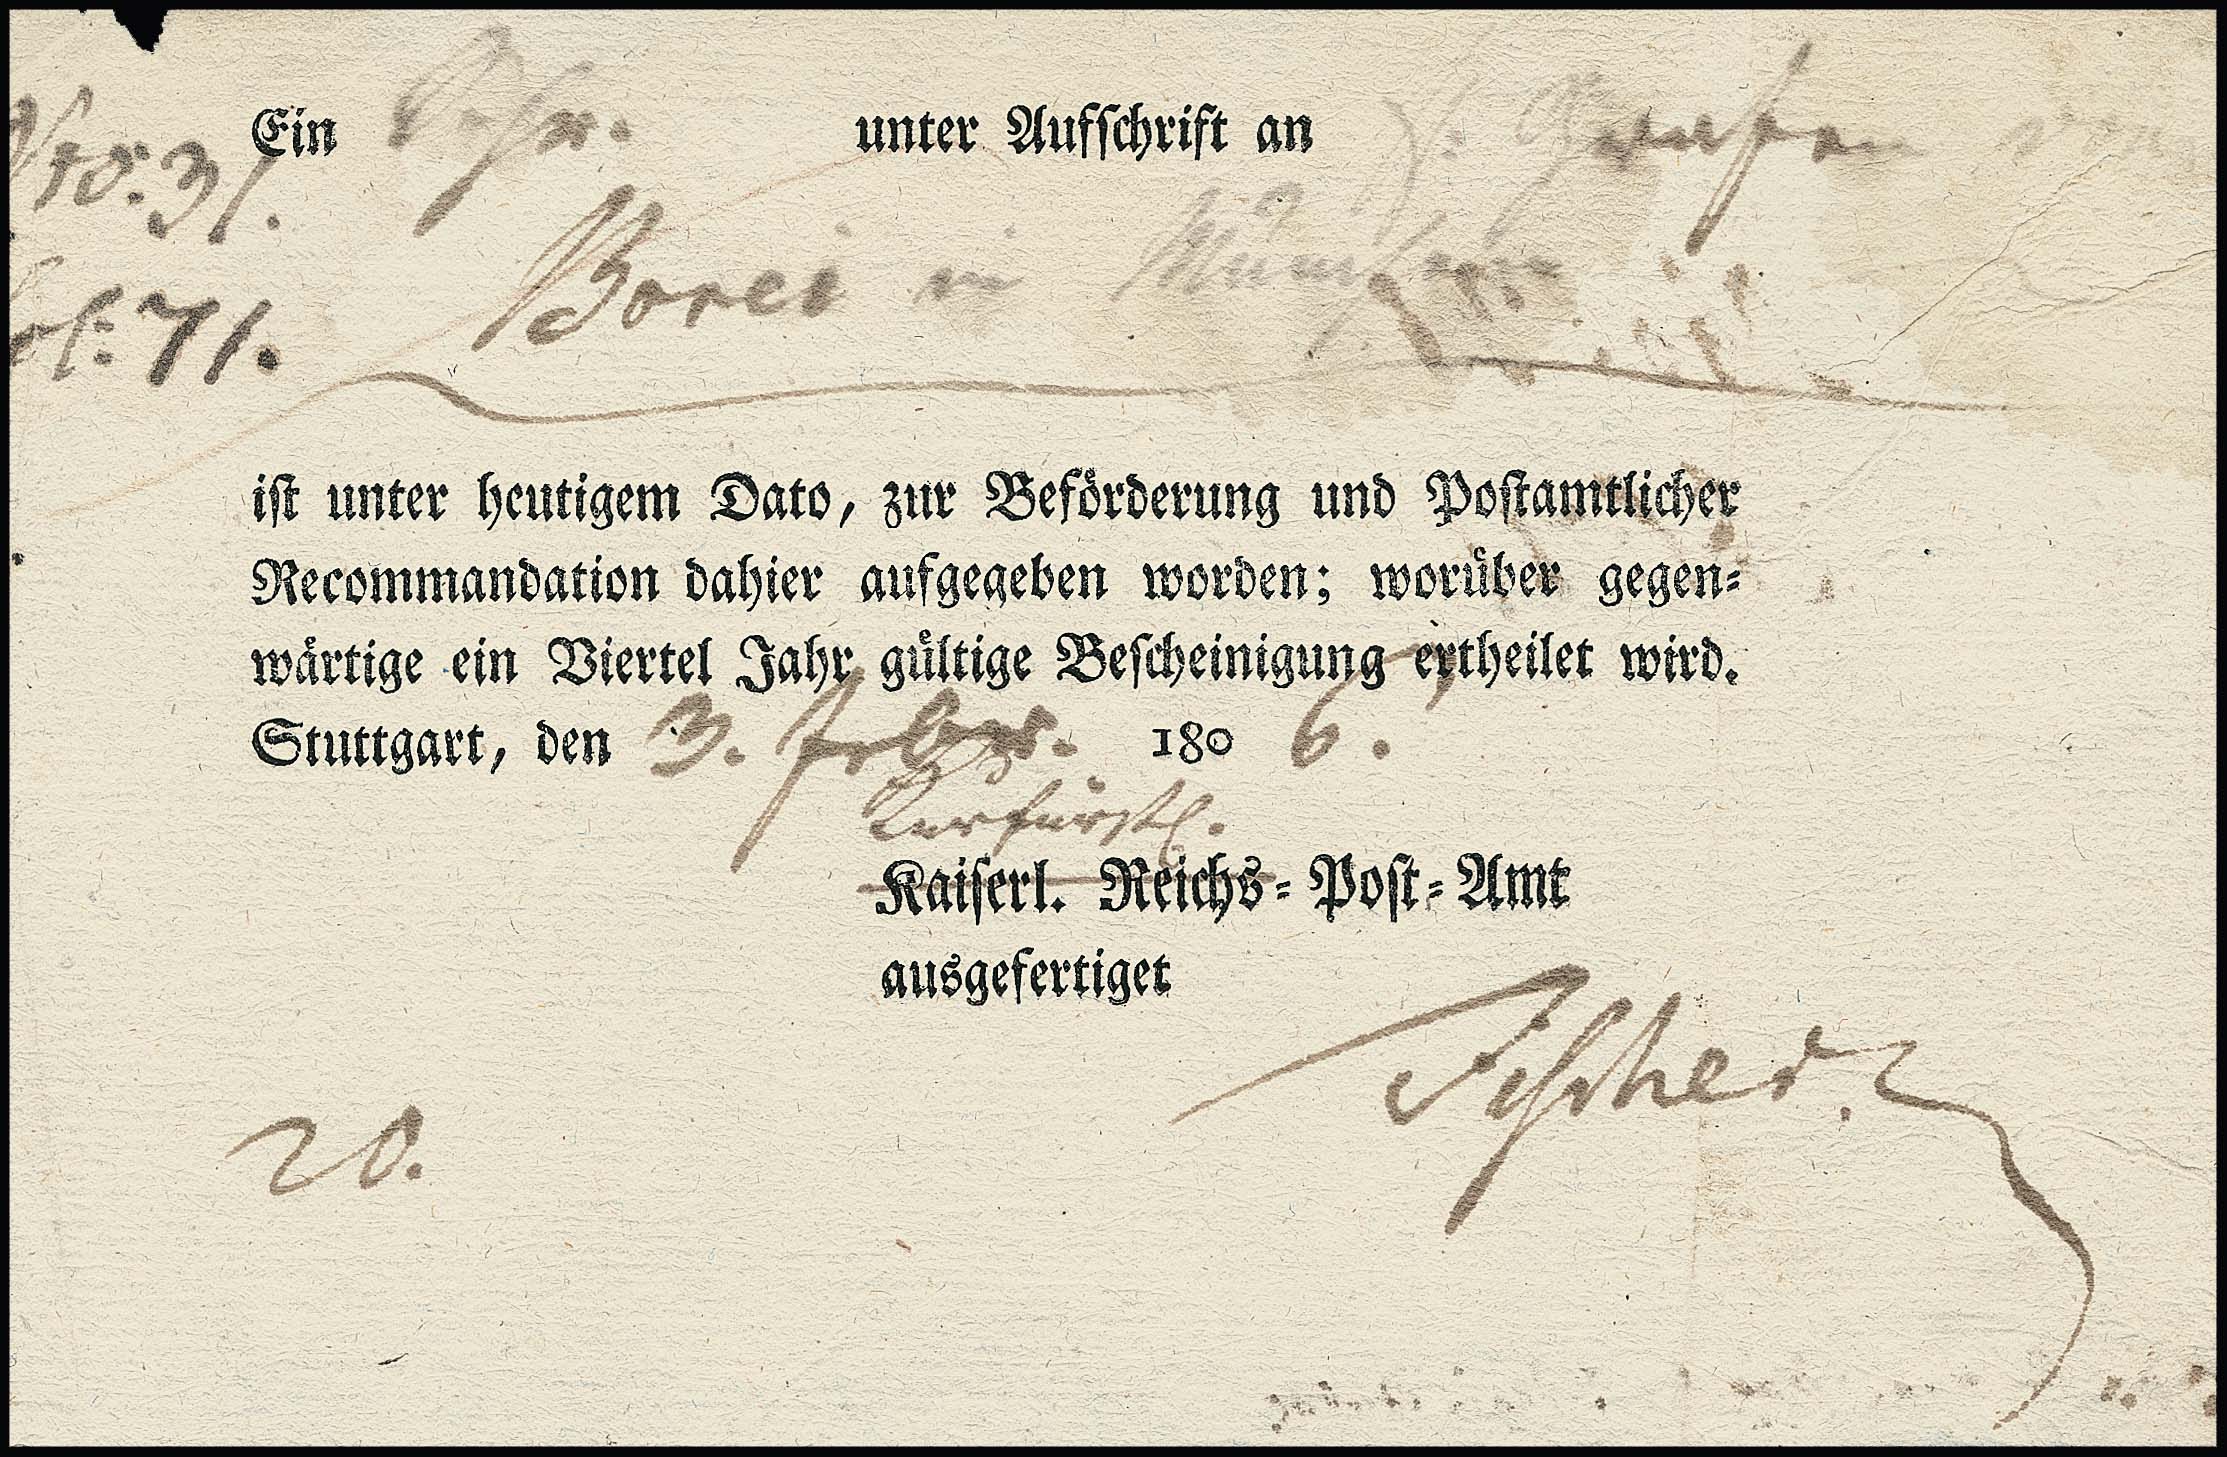 Ein Schr. unter Aufschrift an H. Grafen
Nro: 31.
Borei in München
fol: 71.
ist unter heutigem Dato, zur Beförderung und Postamtlicher
Recommandation dahier aufgegeben worden; worüber gegen⸗
wärtige ein Viertel Jahr gültige Bescheinigung ertheilet wird.
Stuttgart, den 3. Febr. 180 6.
Kurfürstl.
Kaiserl. Reichs⸗Post⸗Amt
ausgefertiget
Fischer.
20.